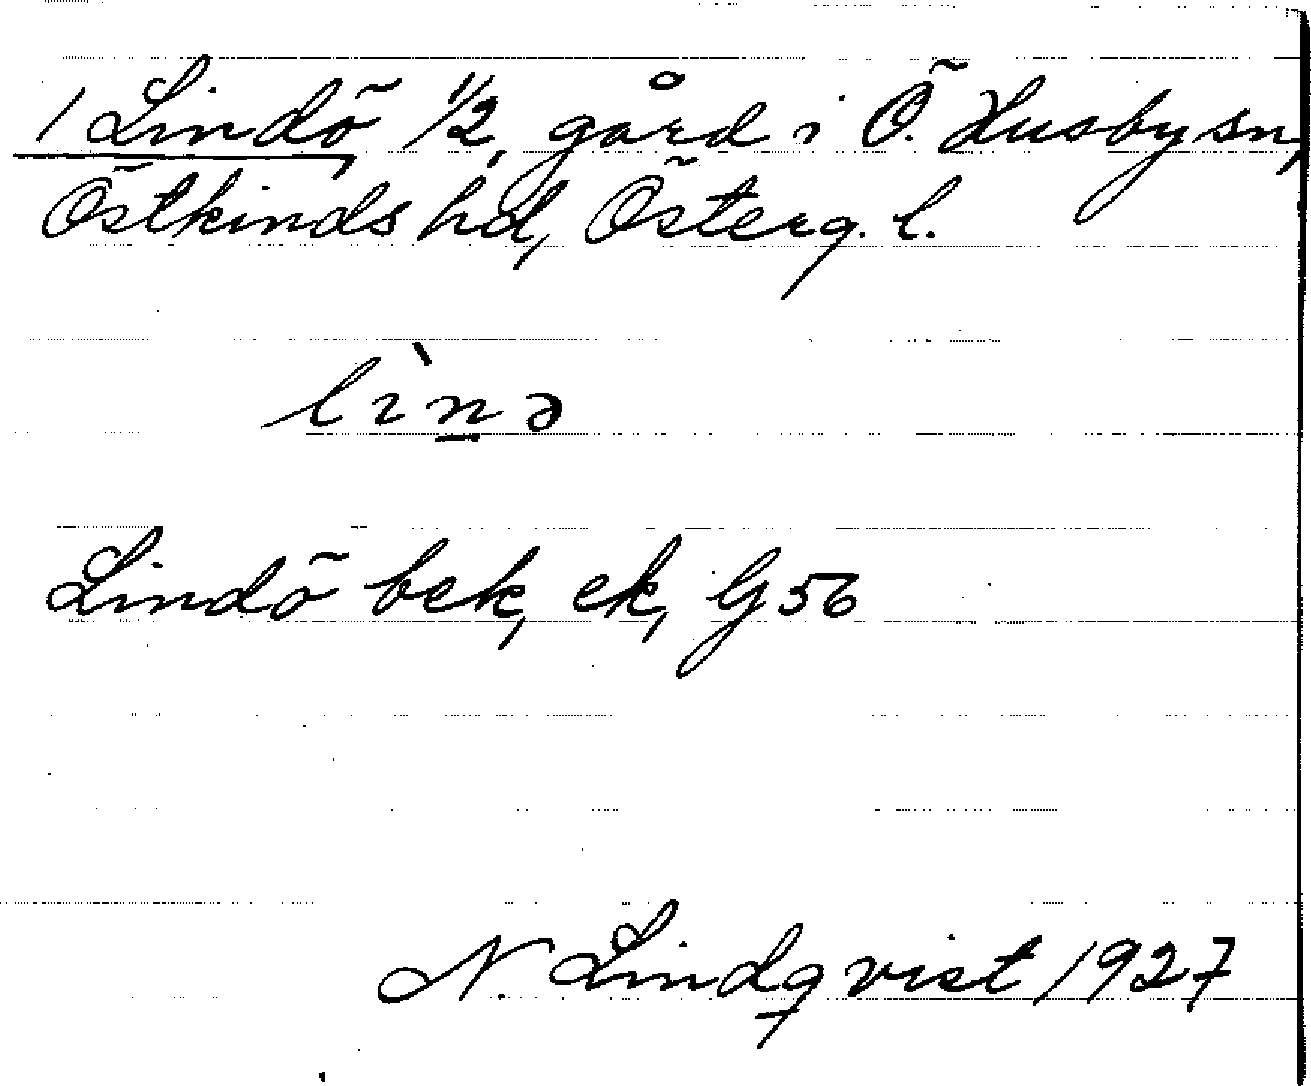 1 Lindö 1/2, gård i Ö. Husby sn,
Östkinds hd, Österg. l.
lìnə
Lindö bek, ek, G 56
N. Lindqvist 1927